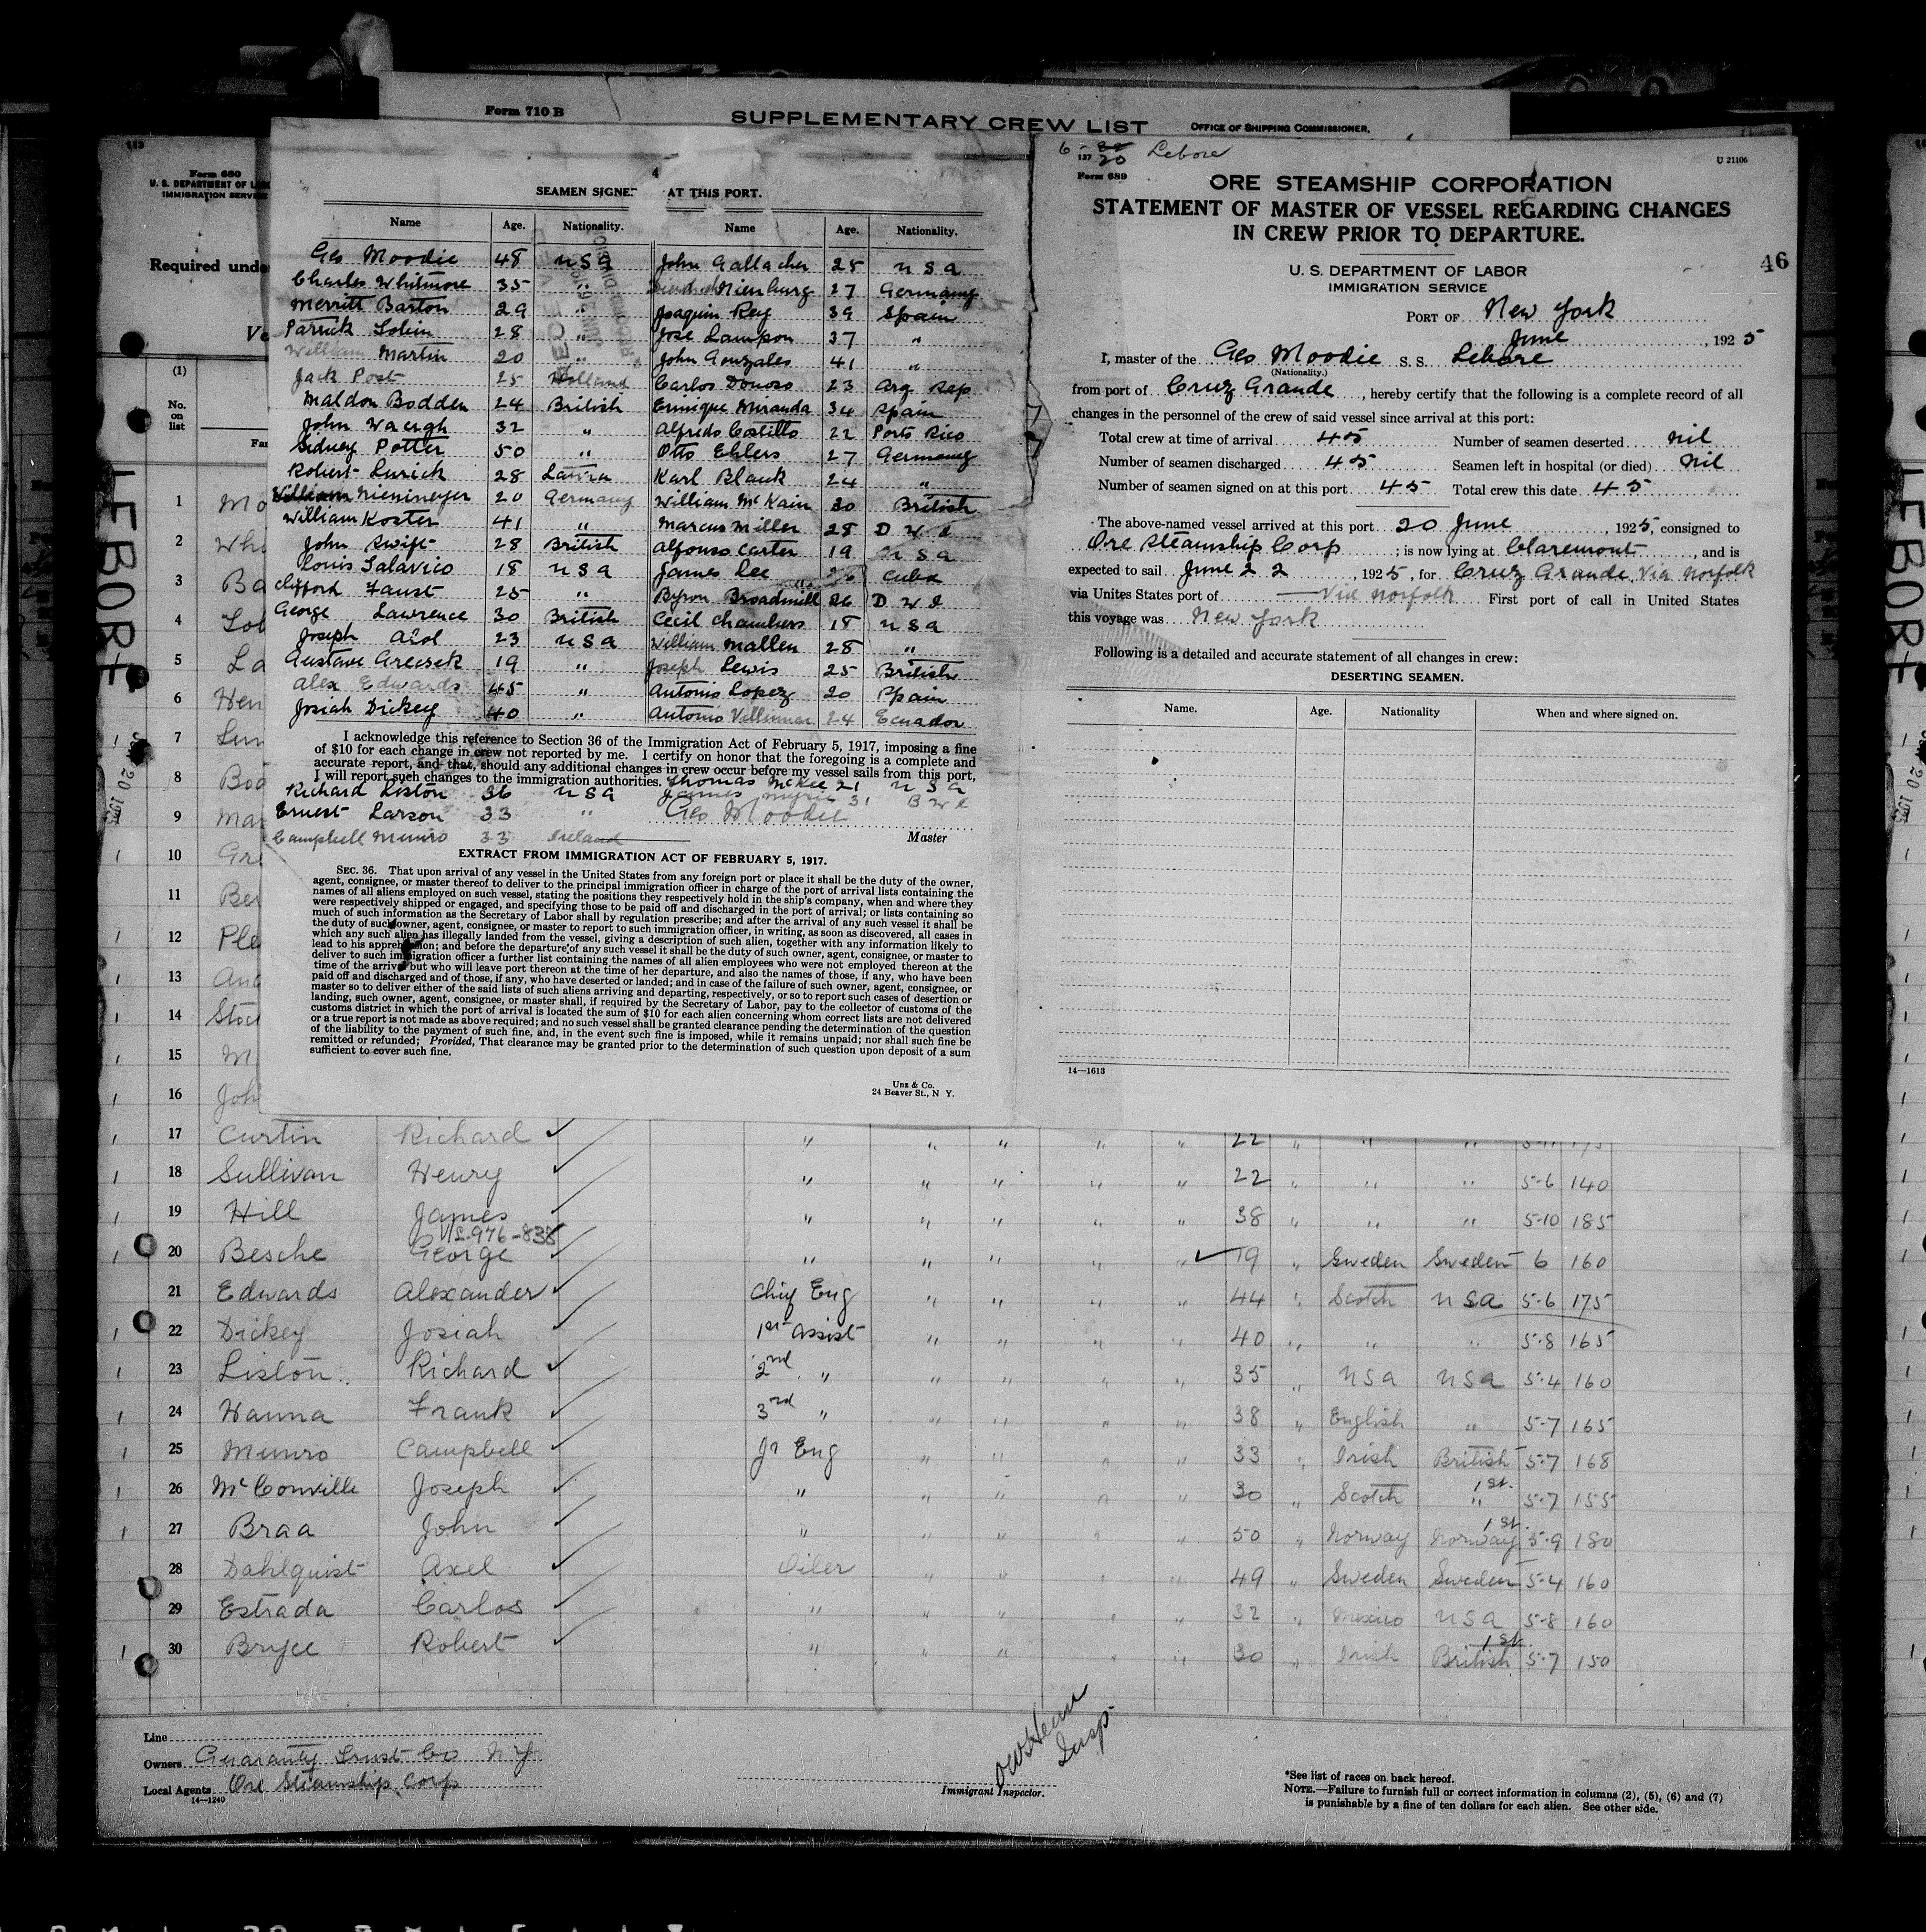 Form 710 B SUPPLEMENTARY CREW LIST OFFICE OF SHIPPING COMMISSIONER,
Form 680
U. S. DEPARTMENT OF
IMMIGRATION
Required
(1)
No.
on
list
LEBORE
4
SEAMEN SIGNE AT THIS PORT.
Name Age. Nationality. Name Age. Nationality.
Geo Moodie 48 U S a John Gallacher 25 U S a
Charles Whitmore 35 " Nienburg 27 Germany
Merritt Barton 29 " Joaquin Rey 39 Spain
28 " Jose 37 "
William Martin 20 John Gonzales 41 "
Jack Post 25 Holland Carlos Donoso 23 Arg Rep
Maldon Bodden 24 British Enrique Miranda 34 Spain
John Waugh 32 " Alfredo Costillo 22 Porto Rico
Sidney Potter 50 " Otto Ehlers 27 Germany
Robert 28 Latvia Karl Blank 24 "
William Niemmeyer 20 Germany William McKain 30 British
William Koster 41 " Marcus Miller 28 D W I
John Swift 28 British Alfonso Carter 19 U S a
Louis Salavico 18 U S a James Lee 26 Cuba
Clifford Faust 25 " Byron 26 D W I
George Lawrence 30 British Cecil Chambers 18 U S a
Joseph 23 U S a William Mallen 28 "
Gustave 19 " Joseph Lewis 25 British
Alex Edwards 45 " Antonio Lopez 20 Spain
Josiah Dickey 40 " Antonio 24 Ecuador
I acknowledge this reference to Section 36 of the Immigration Act of February 5, 1917, imposing a fine
of $10 for each change in crew not reported by me. I certify on honor that the foregoing is a complete and
accurate report, and that, should any additional changes in crew occur before my vessel sails from this port,
I will report such changes to the immigration authorities. Thomas McKee 21 U S a
Richard Liston 36 U S a James 31 B W I
Ernest Larson 33 " Geo Moodie
Campbell Munro 33 Ireland Master
EXTRACT FROM IMMIGRATION ACT OF FEBRUARY 5, 1917.
SEC. 36. That upon arrival of any vessel in the United States from any foreign port or place it shall be the duty of the owner,
agent, consignee, or master thereof to deliver to the principal immigration officer in charge of the port of arrival lists containing the
names of all aliens employed on such vessel, stating the positions they respectively hold in the ship's company, when and where they
were respectively shipped or engaged, and specifying those to be paid off and discharged in the port of arrival; or lists containing so
much of such information as the Secretary of Labor shall by regulation prescribe; and after the arrival of any such vessel it shall be
the duty of such owner, agent, consignee, or master to report to such immigration officer, in writing, as soon as discovered, all cases in
which any such alien has illegally landed from the vessel, giving a description of such alien, together with any information likely to
lead to his apprehension; and before the departure of any such vessel it shall be the duty of such owner, agent, consignee, or master to
deliver to such immigration officer a further list containing the names of all alien employees who were not employed thereon at the
time of the arrival but who will leave port thereon at the time of her departure, and also the names of those, if any, who have been
paid off and discharged and of those, if any, who have deserted or landed; and in case of the failure of such owner, agent, consignee, or
master so to deliver either of the said lists of such aliens arriving and departing, respectively, or so to report such cases of desertion or
landing, such owner, agent, consignee, or master shall, if required by the Secretary of Labor, pay to the collector of customs of the
customs district in which the port of arrival is located the sum of $10 for each alien concerning whom correct lists are not delivered
or a true report is not made as above required; and no such vessel shall be granted clearance pending the determination of the question
of the liability to the payment of such fine, and, in the event such fine is imposed, while it remains unpaid; nor shall such fine be
remitted or refunded; Provided, That clearance may be granted prior to the determination of such question upon deposit of a sum
sufficient to cover such fine.
Unz & Co.
24 Beaver St., N Y.
6 - 20 Lebore
137
Form 689
U 21106
ORE STEAMSHIP CORPORATION
STATEMENT OF MASTER OF VESSEL REGARDING CHANGES
IN CREW PRIOR TO DEPARTURE.
46
U. S. DEPARTMENT OF LABOR
IMMIGRATION SERVICE
PORT OF New York
June , 1925
I, master of the Geo Moodie S. S. Lebore
(Nationality.)
from port of Cruz Grande , hereby certify that the following is a complete record of all
changes in the personnel of the crew of said vessel since arrival at this port:
Total crew at time of arrival 45 Number of seamen deserted nil
Number of seamen discharged 45 Seamen left in hospital (or died) Nil
Number of seamen signed on at this port 45 Total crew this date 45
The above-named vessel arrived at this port 20 June , 1925, consigned to
Ore Steamship Corp ; is now lying at Claremont , and is
expected to sail June 22 , 1925, for Cruz Grande Via Norfolk
via Unites States port of Via Norfolk First port of call in United States
this voyage was New York
Following is a detailed and accurate statement of all changes in crew:
DESERTING SEAMEN.
Name. Age. Nationality When and where signed on.
14—1613
1 Mo
2 Whi
3 Ba
4 Lob
5 La
6 Hen
7
8 Bod
9 Mar
10 Gre
11 Ber
12 Ple
13 And
14 Stoc
15 M
16 Joh
17 Curtin Richard " " " " " 22 " " "
18 Sullivan Henry " " " " " 22 " " " 5-6 140
19 Hill James " " " " " 38 " " " 5-10 185
976-838
20 Besche George " " " " " 19 " Sweden Sweden 6 160
21 Edwards Alexander Chief Eng " " " " 44 " Scotch U S a 5-6 175
22 Dickey Josiah 1st Assist " " " " 40 " " " 5-8 165
23 Liston Richard 2nd " " " " " 35 " U S a U S a 5-4 160
24 Hanna Frank 3rd " " " " " 38 " English " 5-7 165
25 Munro Campbell Jr Eng " " " " 33 " Irish British 5-7 168
26 McConville Joseph " " " " " 30 " Scotch 1st " 5-7 155
27 Braa John " " " " " 50 " Norway 1st Norway 5-9 180
28 Dahlquist Axel Oiler " " " " 49 " Sweden Sweden 5-4 160
29 Estrada Carlos " " " " " 32 " Mexico U S a 5-8 160
30 Bryce Robert " " " " " 30 " Irish 1st British 5-7 150
Line
Owners Guaranty Trust Co N Y
Local Agents Ore Steamship Corp
14—1240
Insp.
Immigrant Inspector.
*See list of races on back hereof.
NOTE.—Failure to furnish full or correct information in columns (2), (5), (6) and (7)
is punishable by a fine of ten dollars for each alien. See other side.
LEBORE